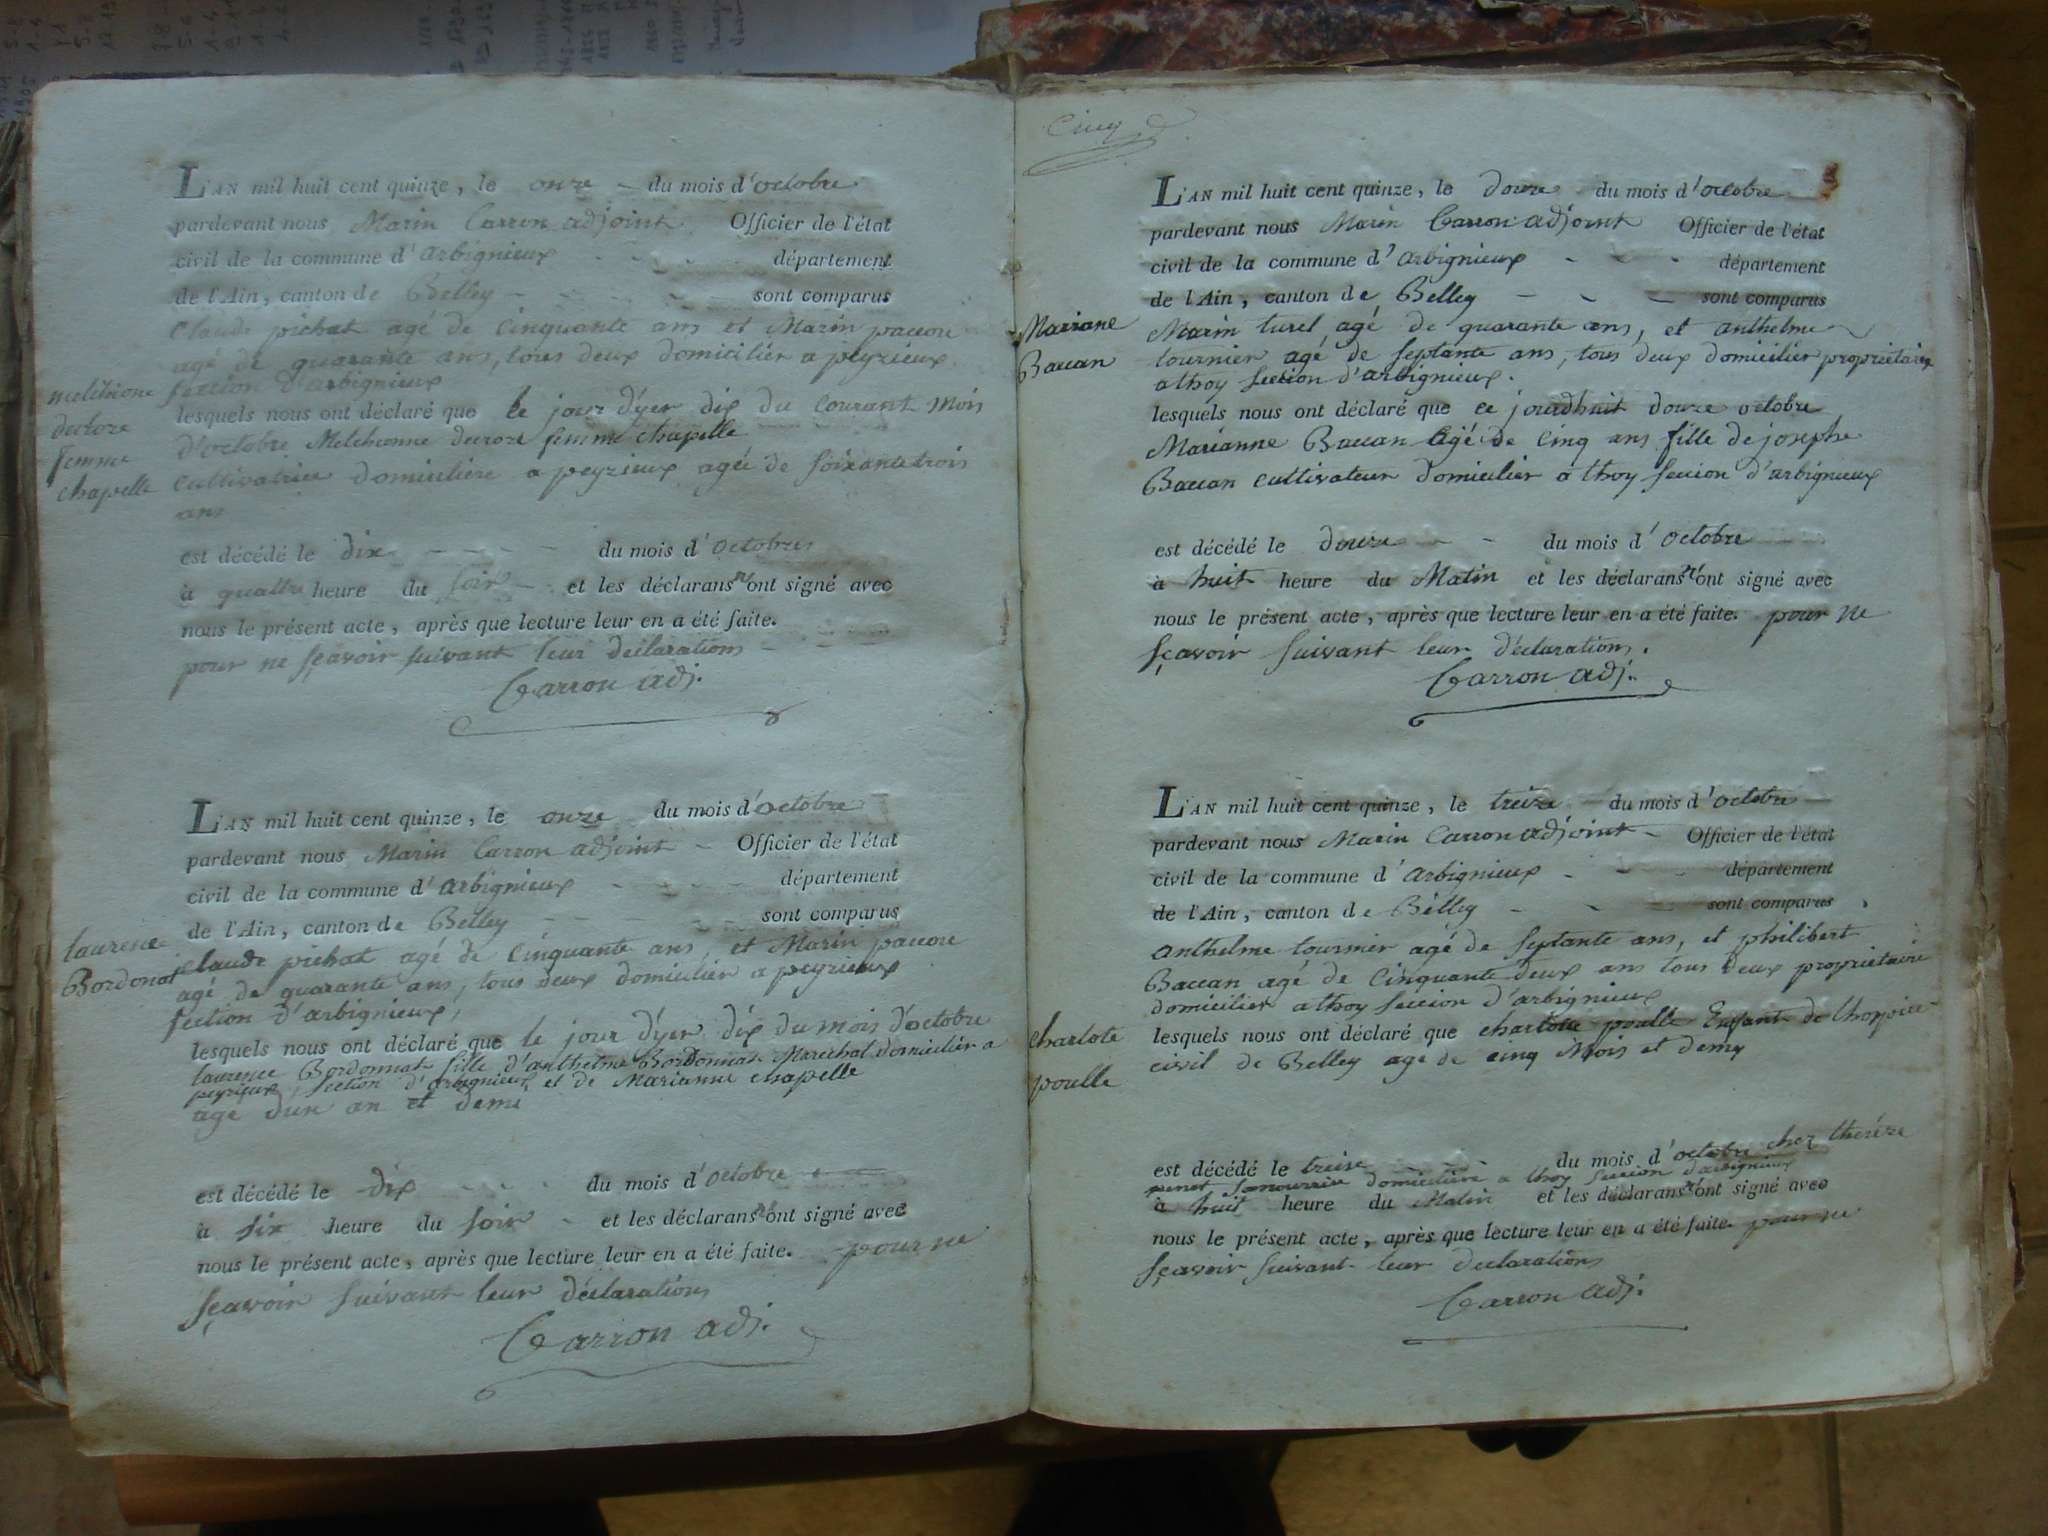 L'AN mil huit cent quinze, le onze du mois d'octobre
pardevant nous Marin Carron adjoint Officier de l'état
civil de la commune d'arbignieux département
de l'Ain, canton de Belley sont comparus
Claude pichat agé de Cinquante ans et Marin paccou
agé de quarante ans, tous deux domicilier a peyzieux
section d'arbignieux
melchione
decroze
femme
chapelle
lesquels nous ont déclaré que le jour d'yer dix du courant mois
d'octobre Melchionne decroze femme chapelle
cultivatrice domicilière a peyzieux agée de soixante trois
ans
est décédé le dix du mois d'octobre
à quattre heure du soir et les déclarans n'ont signé avec
nous le présent acte, après que lecture leur en a été faite.
pour ne sçavoir suivant leur déclarations
Carron adj.
L'AN mil huit cent quinze, le onze du mois d'octobre
pardevant nous Marin Carron adjoint Officier de l'état
civil de la commune d'arbignieux département
de l'Ain, canton de Belley sont comparus
laurence
Bordonat
claude pichat agé de Cinquante ans, et Marin paccou
agé de quarante ans, tous deux domicilier a peyzieux
section d'arbignieux,
lesquels nous ont déclaré que le jour d'yer dix du mois d'octobre
laurence Bordonnat fille d'anthelme Bordonnat Marechal domicilier a
peyzieux, section d'arbignieux et de Marianne chapelle
age d'un an et demi
est décédé le dix du mois d'octobre
à six heure du soir et les déclarans n'ont signé avec
nous le présent acte, après que lecture leur en a été faite. pour ne
sçavoir suivant leur déclarations
Carron adj.
Cinq
L'AN mil huit cent quinze, le douze du mois d'octobre
pardevant nous Marin Carron adjoint Officier de l'état
civil de la commune d'arbignieux département
de l'Ain, canton de Belley sont comparus
Mariane
Baccan
Marin turel agé de quarante ans, et anthelme
tournier agé de septante ans, tous deux domicilier proprietaire
a thoy section d'arbignieux.
lesquels nous ont déclaré que ce jourdhuit douze octobre
Marianne Baccan agé de cinq ans fille de josephe
Baccan cultivateur domicilier a thoy section d'arbignieux
est décédé le douze du mois d'octobre
à huit heure du Matin et les déclarans n'ont signé avec
nous le présent acte, après que lecture leur en a été faite. pour ne
sçavoir suivant leur déclarations.
Carron adj.
L'AN mil huit cent quinze, le treize du mois d'octobre
pardevant nous Marin Carron adjoint Officier de l'état
civil de la commune d'arbignieux département
de l'Ain, canton de Belley sont comparus
anthelme tournier agé de septante ans, et philibert
Baccan agé de cinquante deux ans tous deux proprietaire
domicilier a thoy section d'arbignieux
charlote
poulle
lesquels nous ont déclaré que charlotte poulle Enfant de lhospice
civil de Belley age de cinq Mois et demy
est décédé le treize du mois d'octobre chez therèze
penet sa nourrice domicilière a thoy section d'arbignieux
à huit heure du Matin et les déclarans n'ont signé avec
nous le présent acte, après que lecture leur en a été faite. pour ne
sçavoir suivant leur declarations
Carron adj.